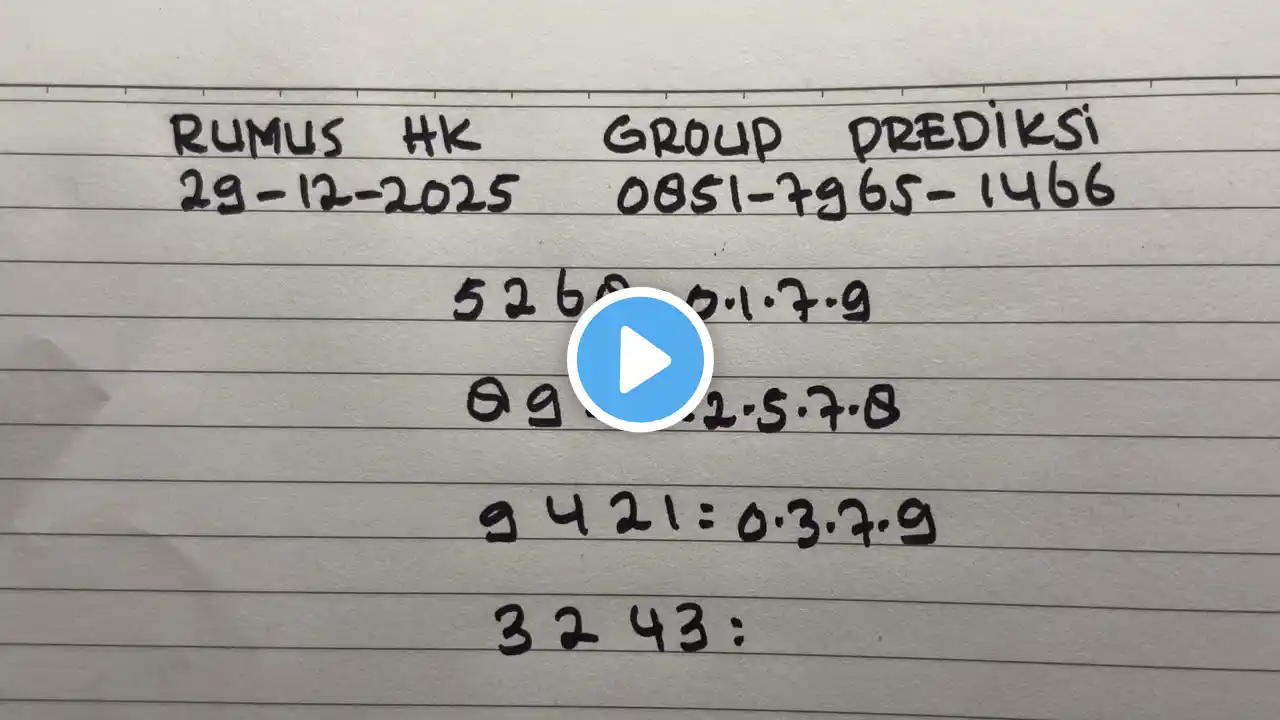 RUMUS HK GROUP PREDIKSI
29-12-2025 0851-7965-1466
5268 0.1.7.9
89 2.5.7.8
9421: 0.3.7.9
3243: